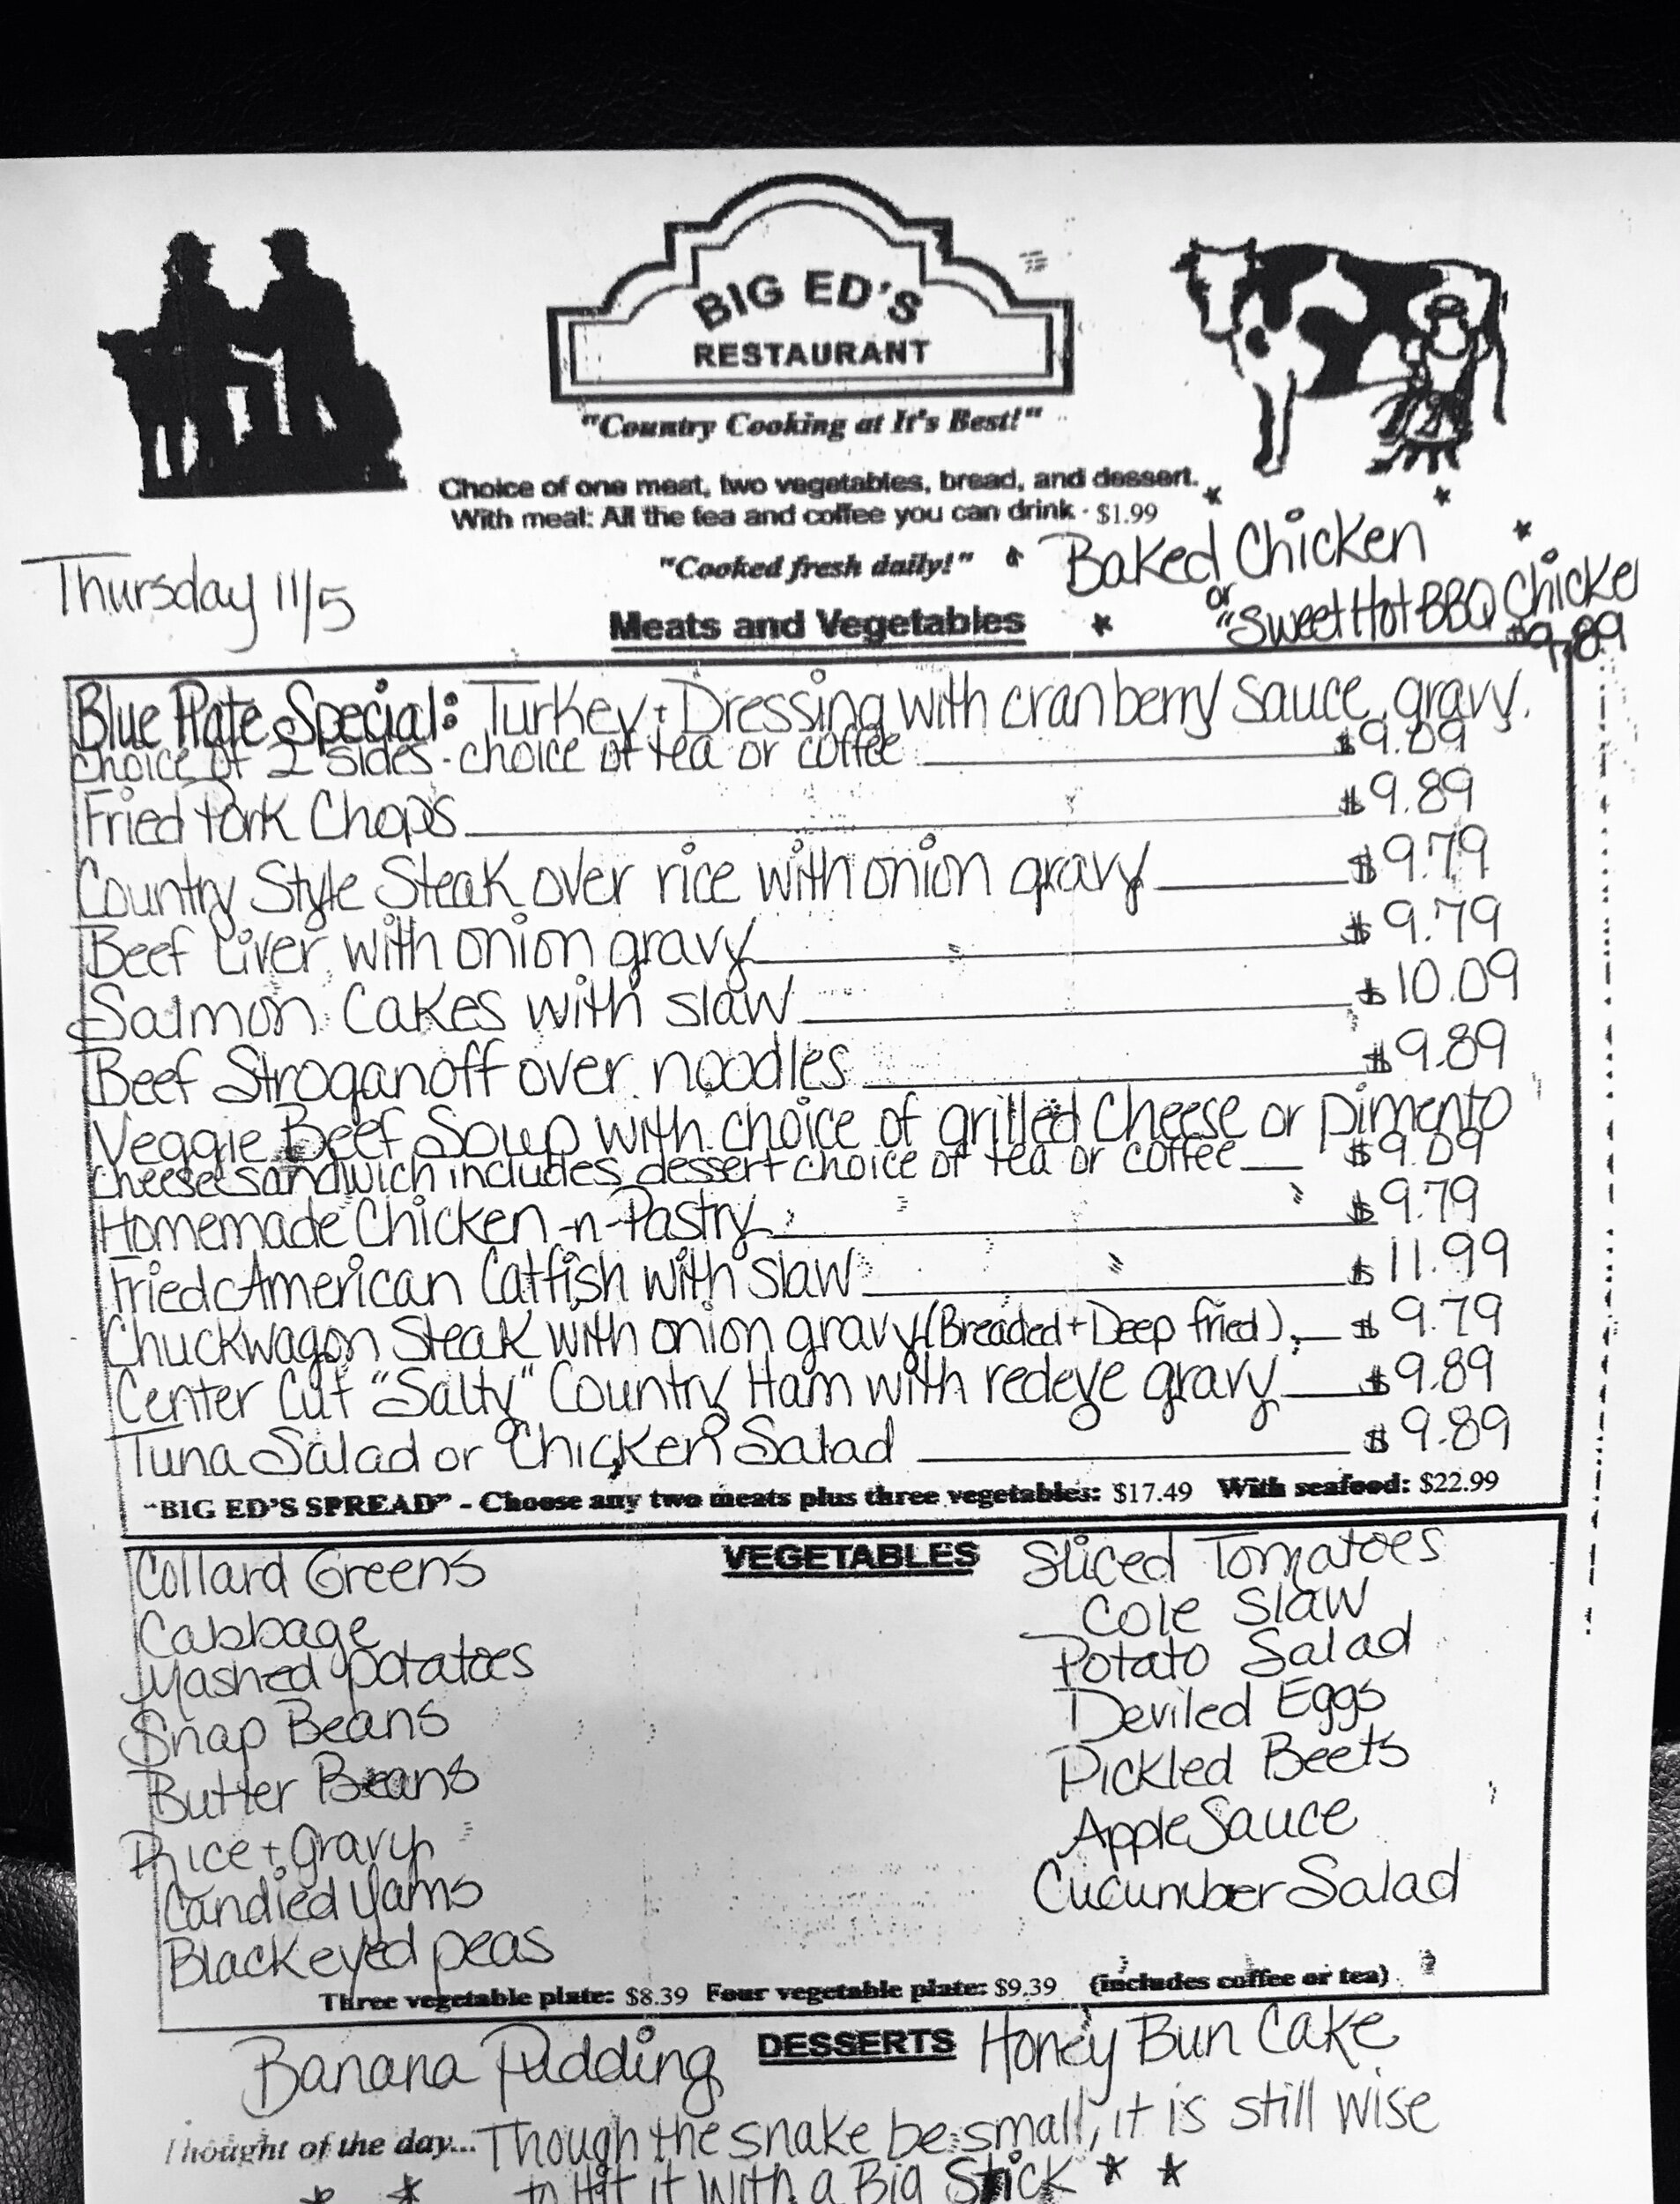 BIG ED'S
RESTAURANT
"Country Cooking at It's Best!"
Choice of one meat, two vegetables, bread, and dessert.
With meal: All the tea and coffee you can drink - $1.99
"Cooked fresh daily!"
Baked Chicken
or
"Sweet Hot BBQ Chicke
$9.89
Thursday 11/5
Meats and Vegetables
Blue Plate Special: Turkey + Dressing with cranberry sauce, gravy,
choice of 2 sides - choice of tea or coffee $9.09
Fried Pork Chops $9.89
Country Style Steak over rice with onion gravy $9.79
Beef Liver with onion gravy $9.79
Salmon Cakes with slaw $10.09
Beef Stroganoff over noodles $9.89
Veggie Beef Soup with choice of grilled Cheese or pimento
cheese sandwich includes dessert choice of tea or coffee $9.09
Homemade Chicken -n- Pastry $9.79
Fried American Catfish with slaw $11.99
Chuckwagon Steak with onion gravy (Breaded + Deep fried) $9.79
Center Cut "Salty" Country Ham with redeye gravy $9.89
Tuna Salad or Chicken Salad $9.89
"BIG ED'S SPREAD" - Choose any two meats plus three vegetables: $17.49 With seafood: $22.99
VEGETABLES
Collard Greens
Cabbage
Mashed potatoes
Snap Beans
Butter Beans
Rice + gravy
Candied Yams
Blackeyed peas
Sliced Tomatoes
Cole Slaw
Potato Salad
Deviled Eggs
Pickled Beets
Apple Sauce
Cucumber Salad
Three vegetable plate: $8.39 Four vegetable plate: $9.39 (includes coffee or tea)
DESSERTS
Banana Pudding
Honey Bun Cake
Thought of the day... Though the snake be small, it is still wise
to Hit it with a Big Stick